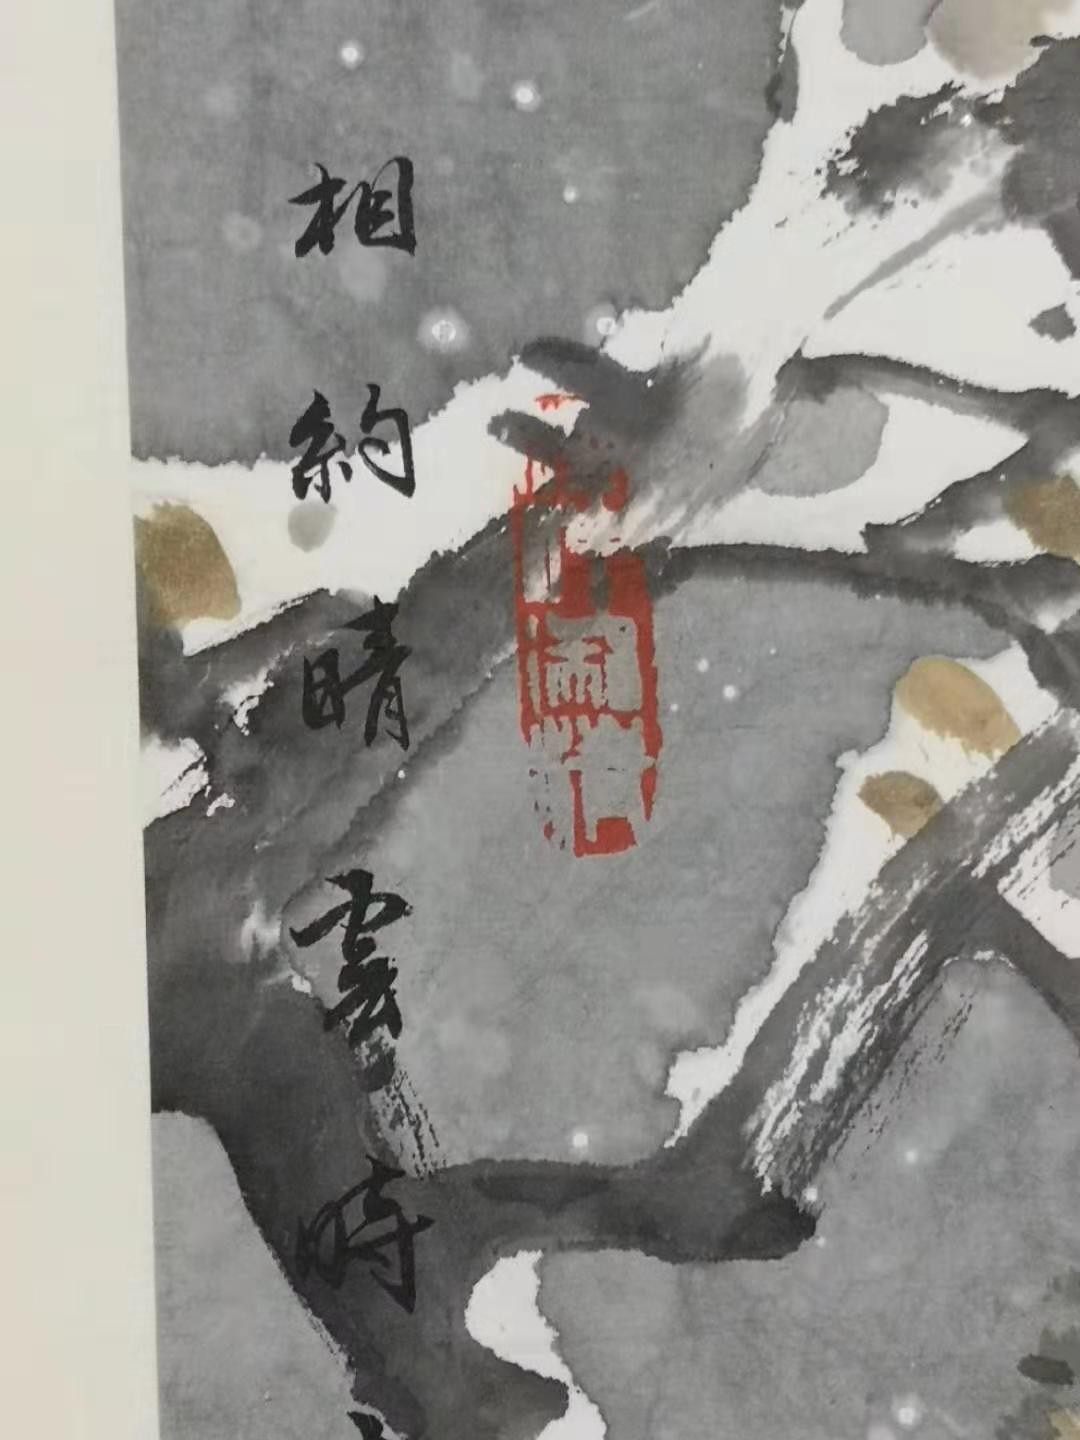 相約晴雲時